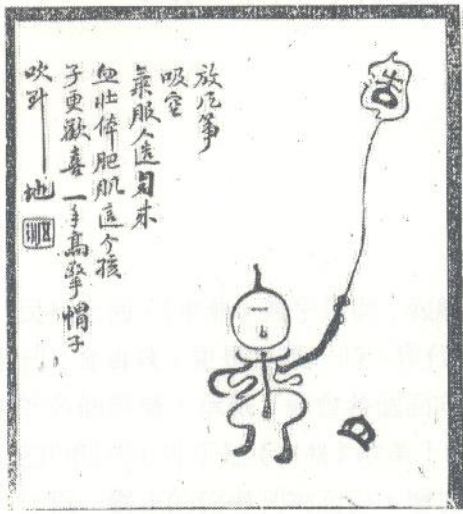 放汽箏
吸空
氣服人造來
血壯体肥肌這个孩
子更歡喜一手高擎帽子
吹到一地